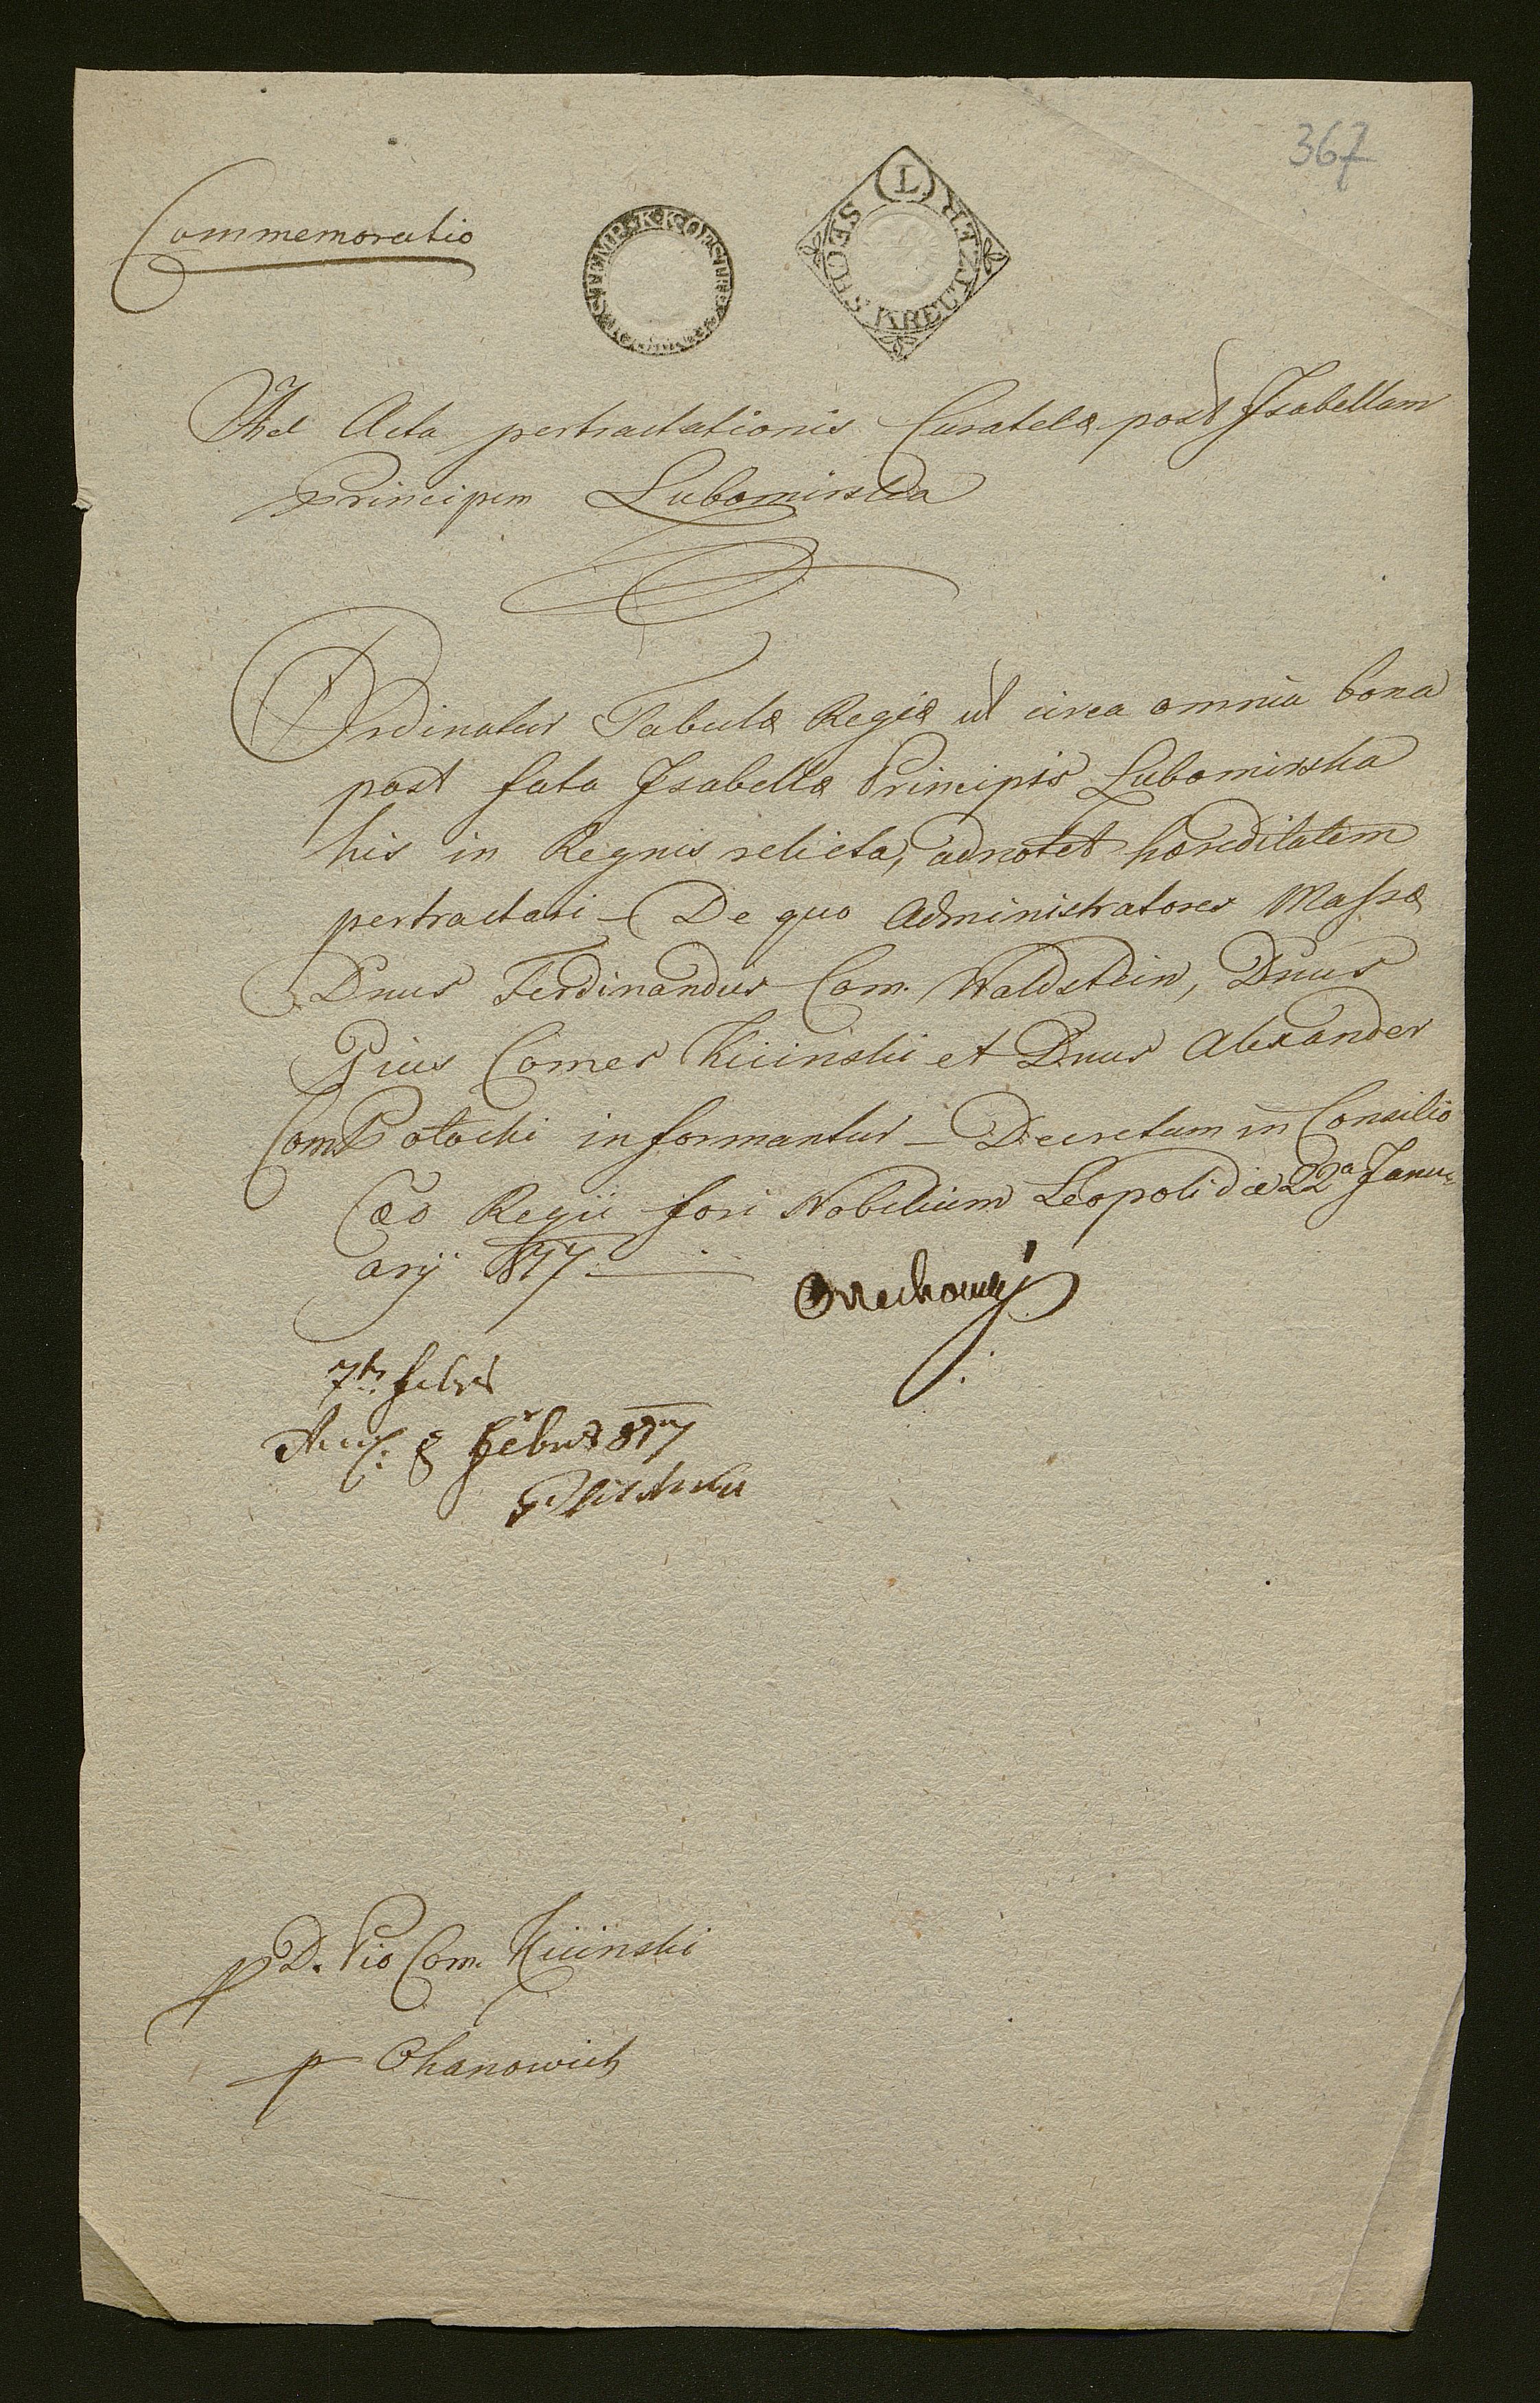 367
Commemoratio
STEMP. K. K. OEST
SECHS KREUTZER (L)
Ad Acta pertractationis Curatelæ post Isabellam
Principem Lubomirska
Ordinatur Tabulæ Regiæ ut circa omnia bona
post fata Isabellæ Principis Lubomirska
his in Regnis relicta, adnotet hæreditatem
pertractari – De quo Administratores Massæ
Dnus Ferdinandus Com. Waldstein, Dnus
Pius Comes Kiciński et Dnus Alexander
Com Potocki informantur – Decretum in Consilio
Cæo Regii fori Nobilium Leopoli die 22a Janu-
arij 817.
Orzechowski
7br febr
8 Febr 817
D. Pio Com. Kiciński
p Ohanowich